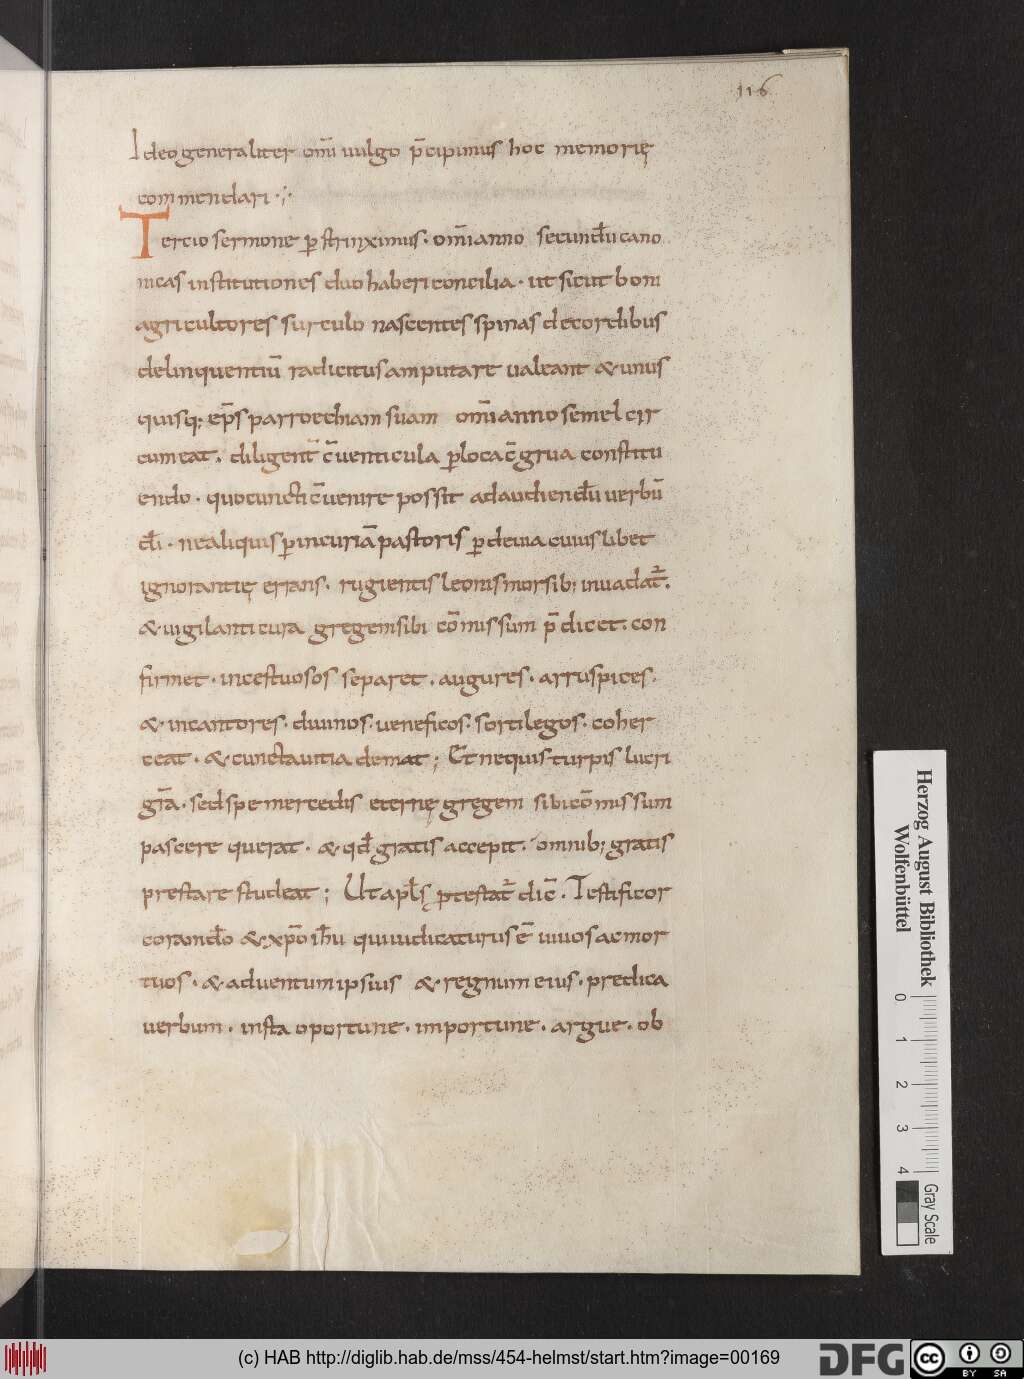 116
Ideo generaliter om̄i uulgo p̄cipimus hoc memorię
commendari
Tercio sermone pstrinximus· om̄i anno secundū cano
nicas institutiones duo haberi concilia· ut sicut boni
agricultores surculo nascentes spinas de cordibus
delinquentiū radicitus amputare ualeant & unus
quisq; ep̄s parroechiam suam om̄i anno semel cir
cumeat. diligent̄ c̄uenticula p loca c̄grua constitu
endo· quo cuncti c̄uenire possit ad audiendū uerbū
dī· ne aliquis p incuriā pastoris p deuia cuius libet
ignorantię errans· rugientis leonis morsib; inuadat̄.
& uigilanti cura gregem sibi cōmissum p̄dicet. con
firmet· incestuosos separet. augures· arruspices.
& incantores· diuinos· ueneficos· sortilegos· coher
ceat· & cuncta uitia demat; Et ne quis turpis lucri
grā· sed spe mercedis eternę gregem sibi cōmissum
pascere querat· & qd̄ gratis accepit. omnib; gratis
prestare studeat; Ut apls̄ ptestat̄ dic̄. Testificor
coram dō & xp̄o ih̄u qui iudicaturus ē uiuos ac mor
tuos· & aduentum ipsius & regnum eius· predica
uerbum· insta oportune· importune· argue· ob
Herzog August Bibliothek
Wolfenbüttel
0 1 2 3 4
Gray Scale
(c) HAB http://diglib.hab.de/mss/454-helmst/start.htm?image=00169
DFG
cc BY SA